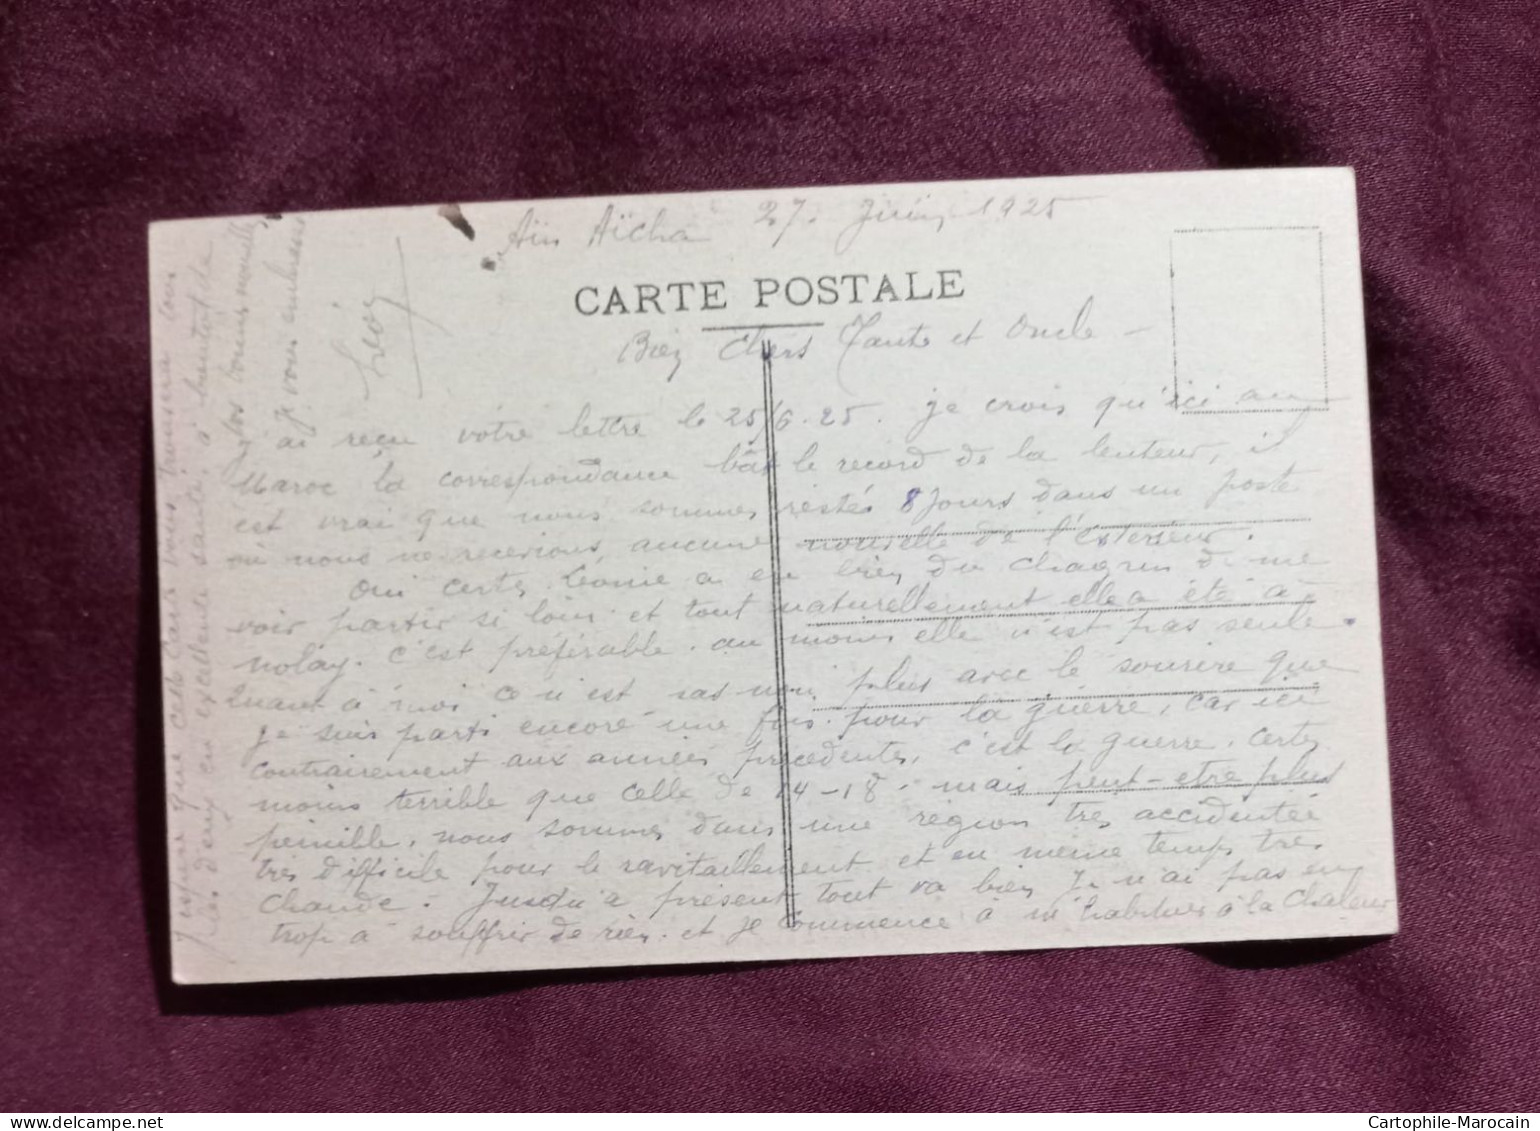 Aïn Aïcha 27. Juin 1925
CARTE POSTALE
Bien Chers Tante et Oncle -
J'ai reçu votre lettre le 25/6.25. je crois qu'ici au
Maroc la correspondance bât le record de la lenteur, il
est vrai que nous sommes restés 8 jours dans un poste
où nous ne recevions aucune nouvelle de l'extérieur.
Oui certes Léonie a eu bien du chagrin de me
voir partir si loin et tout naturellement elle a été à
Nolay. c'est préférable. au moins elle n'est pas seule.
Quant à moi ce n'est pas non plus avec le sourire que
je suis parti encore une fois pour la guerre, car ici
contrairement aux années précédentes, c'est la guerre. certes
moins terrible que celle de 14-18. mais peut-etre plus
pénible, nous sommes dans une région très accidentée
très difficile pour le ravitaillement et en même temps très
chaude. Jusqu'à présent tout va bien Je n'ai pas eu
trop à souffrir de rien. et je commence à m'habituer à la chaleur
J'espère que cette carte vous trouvera tous
les deux en excellente santé, à bientôt de
vos bonnes nouvelles
Je vous embrasse
Léon
Cartophile-Marocain